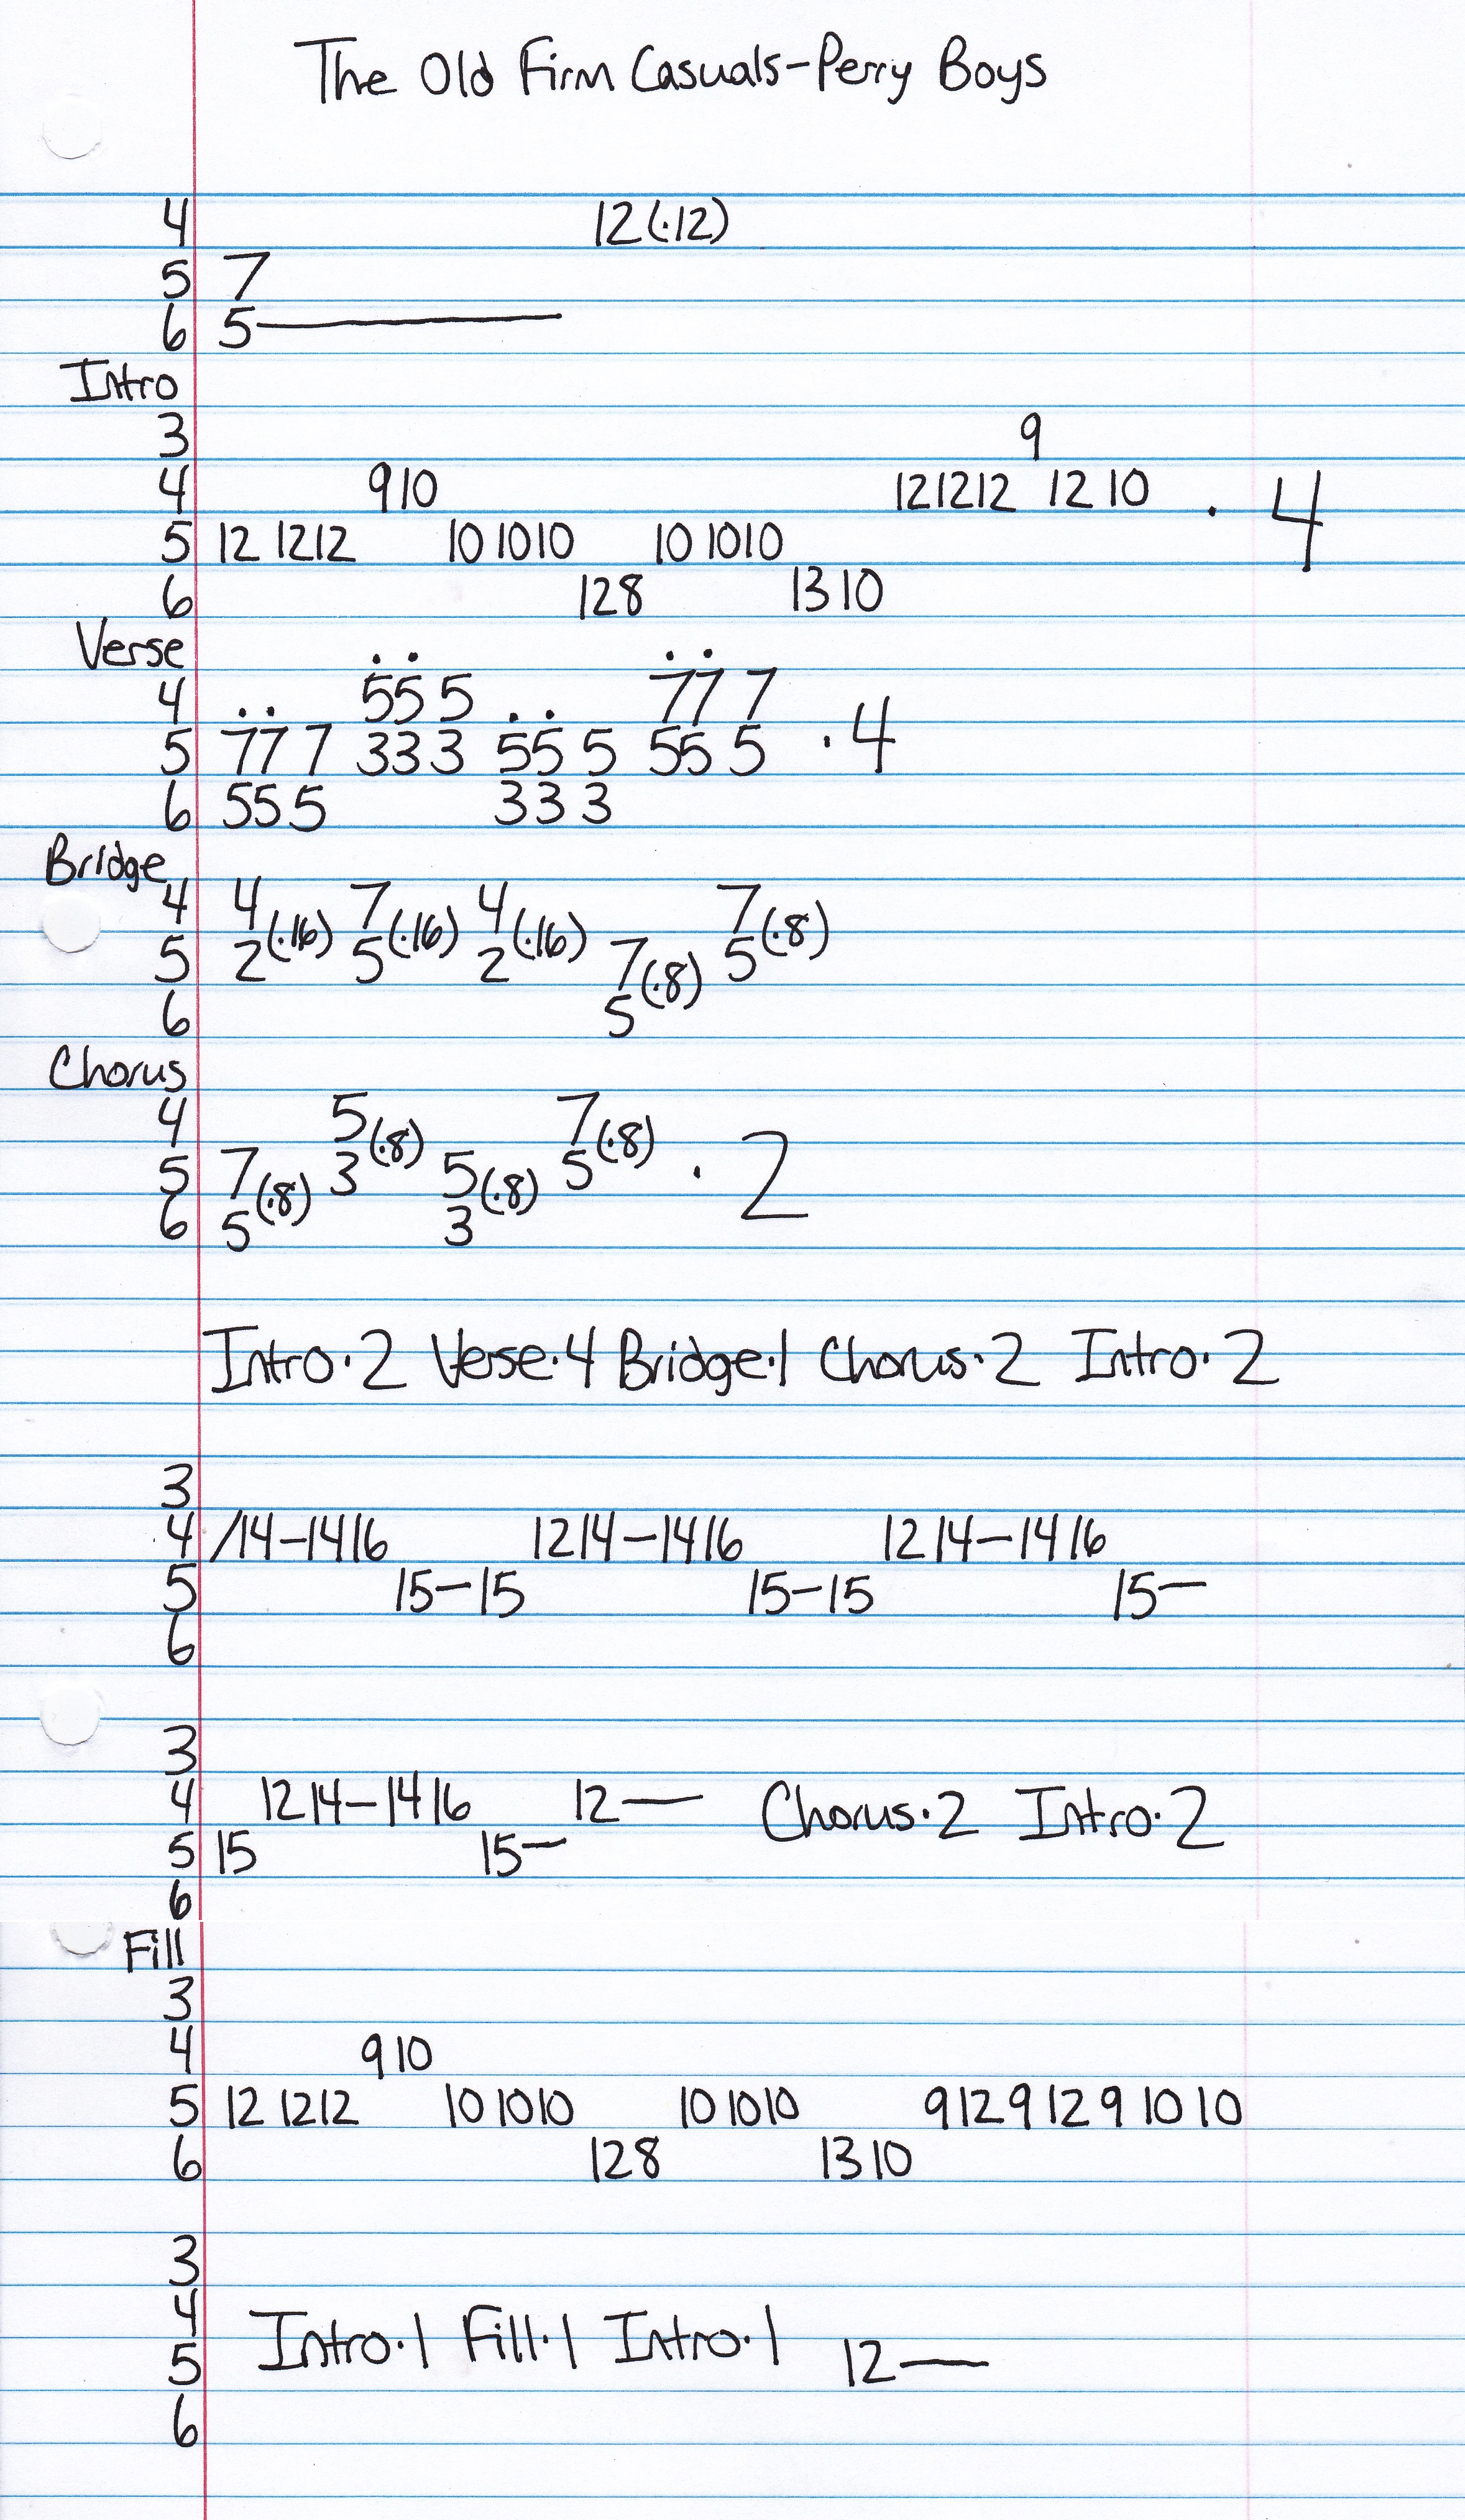 The Old Firm Casuals-Perry Boys
4 12(·12)
5 7
6 5—
Intro
3 9
4 9 10 12 12 12 12 10 · 4
5 12 12 12 10 10 10 10 10 10
6 12 8 13 10
Verse
4 5 5 5 7 7 7
5 7 7 7 3 3 3 5 5 5 5 5 5 · 4
6 5 5 5 3 3 3
Bridge
4 4 7 4 7
5 2 (·16) 5 (·16) 2 (·16) 7 5 (·8)
6 5 (·8)
Chorus
4 5 7
5 7 3 (·8) 5 5 (·8) · 2
6 5 (·8) 3 (·8)
Intro·2 Verse·4 Bridge·1 Chorus·2 Intro·2
3
4 /14-14 16 12 14-14 16 12 14-14 16
5 15-15 15-15 15-
6
3
4 12 14-14 16 12— Chorus·2 Intro·2
5 15 15-
6
Fill
3
4 9 10
5 12 12 12 10 10 10 10 10 10 9 12 9 12 9 10 10
6 12 8 13 10
3
4 Intro·1 Fill·1 Intro·1
5 12—
6